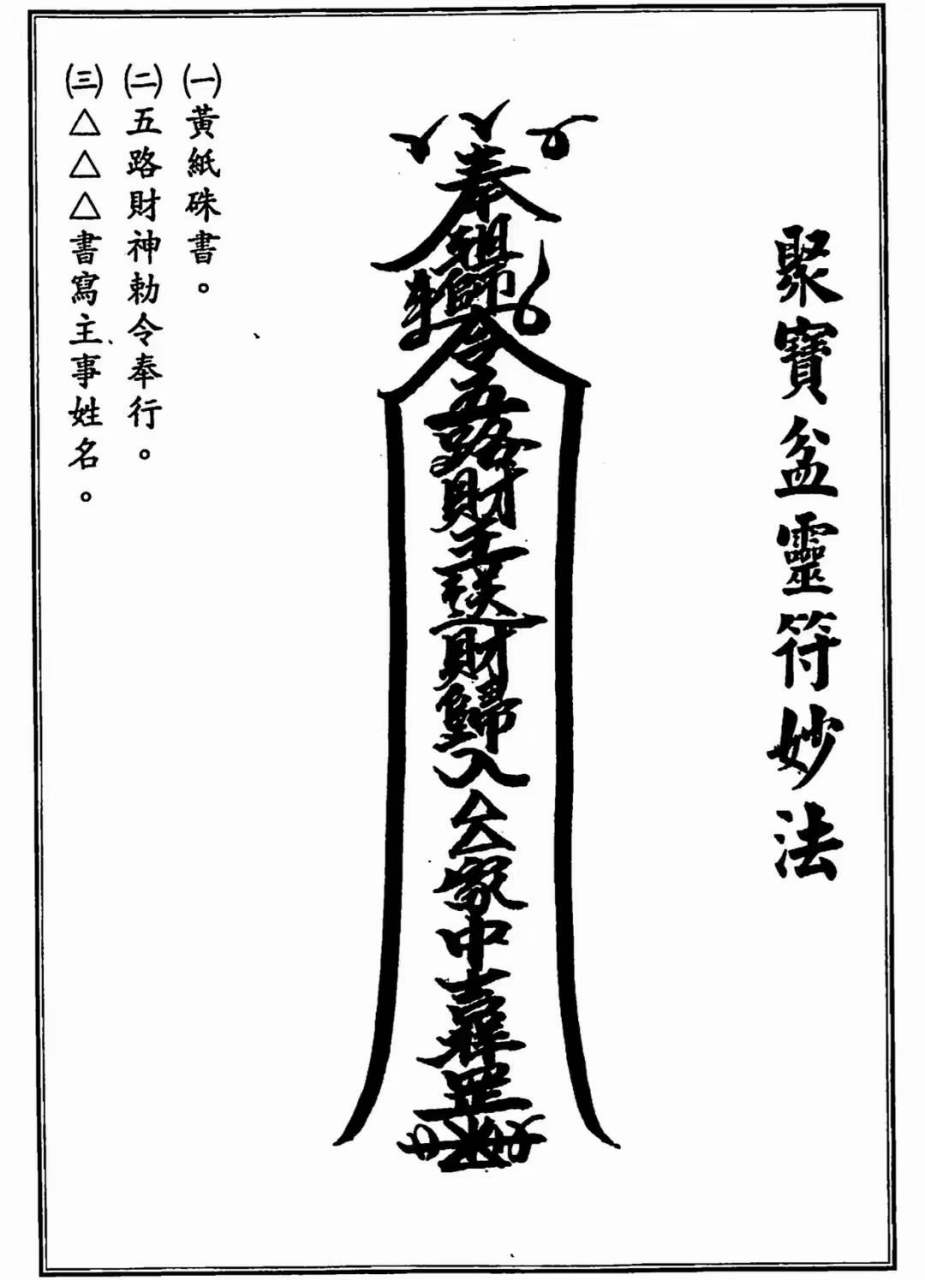 聚寶盆靈符妙法
奉祖師令五路財主送財歸入△△家中吉祥罡
㈠黃紙硃書。
㈡五路財神勅令奉行。
㈢△△△書寫主事姓名。